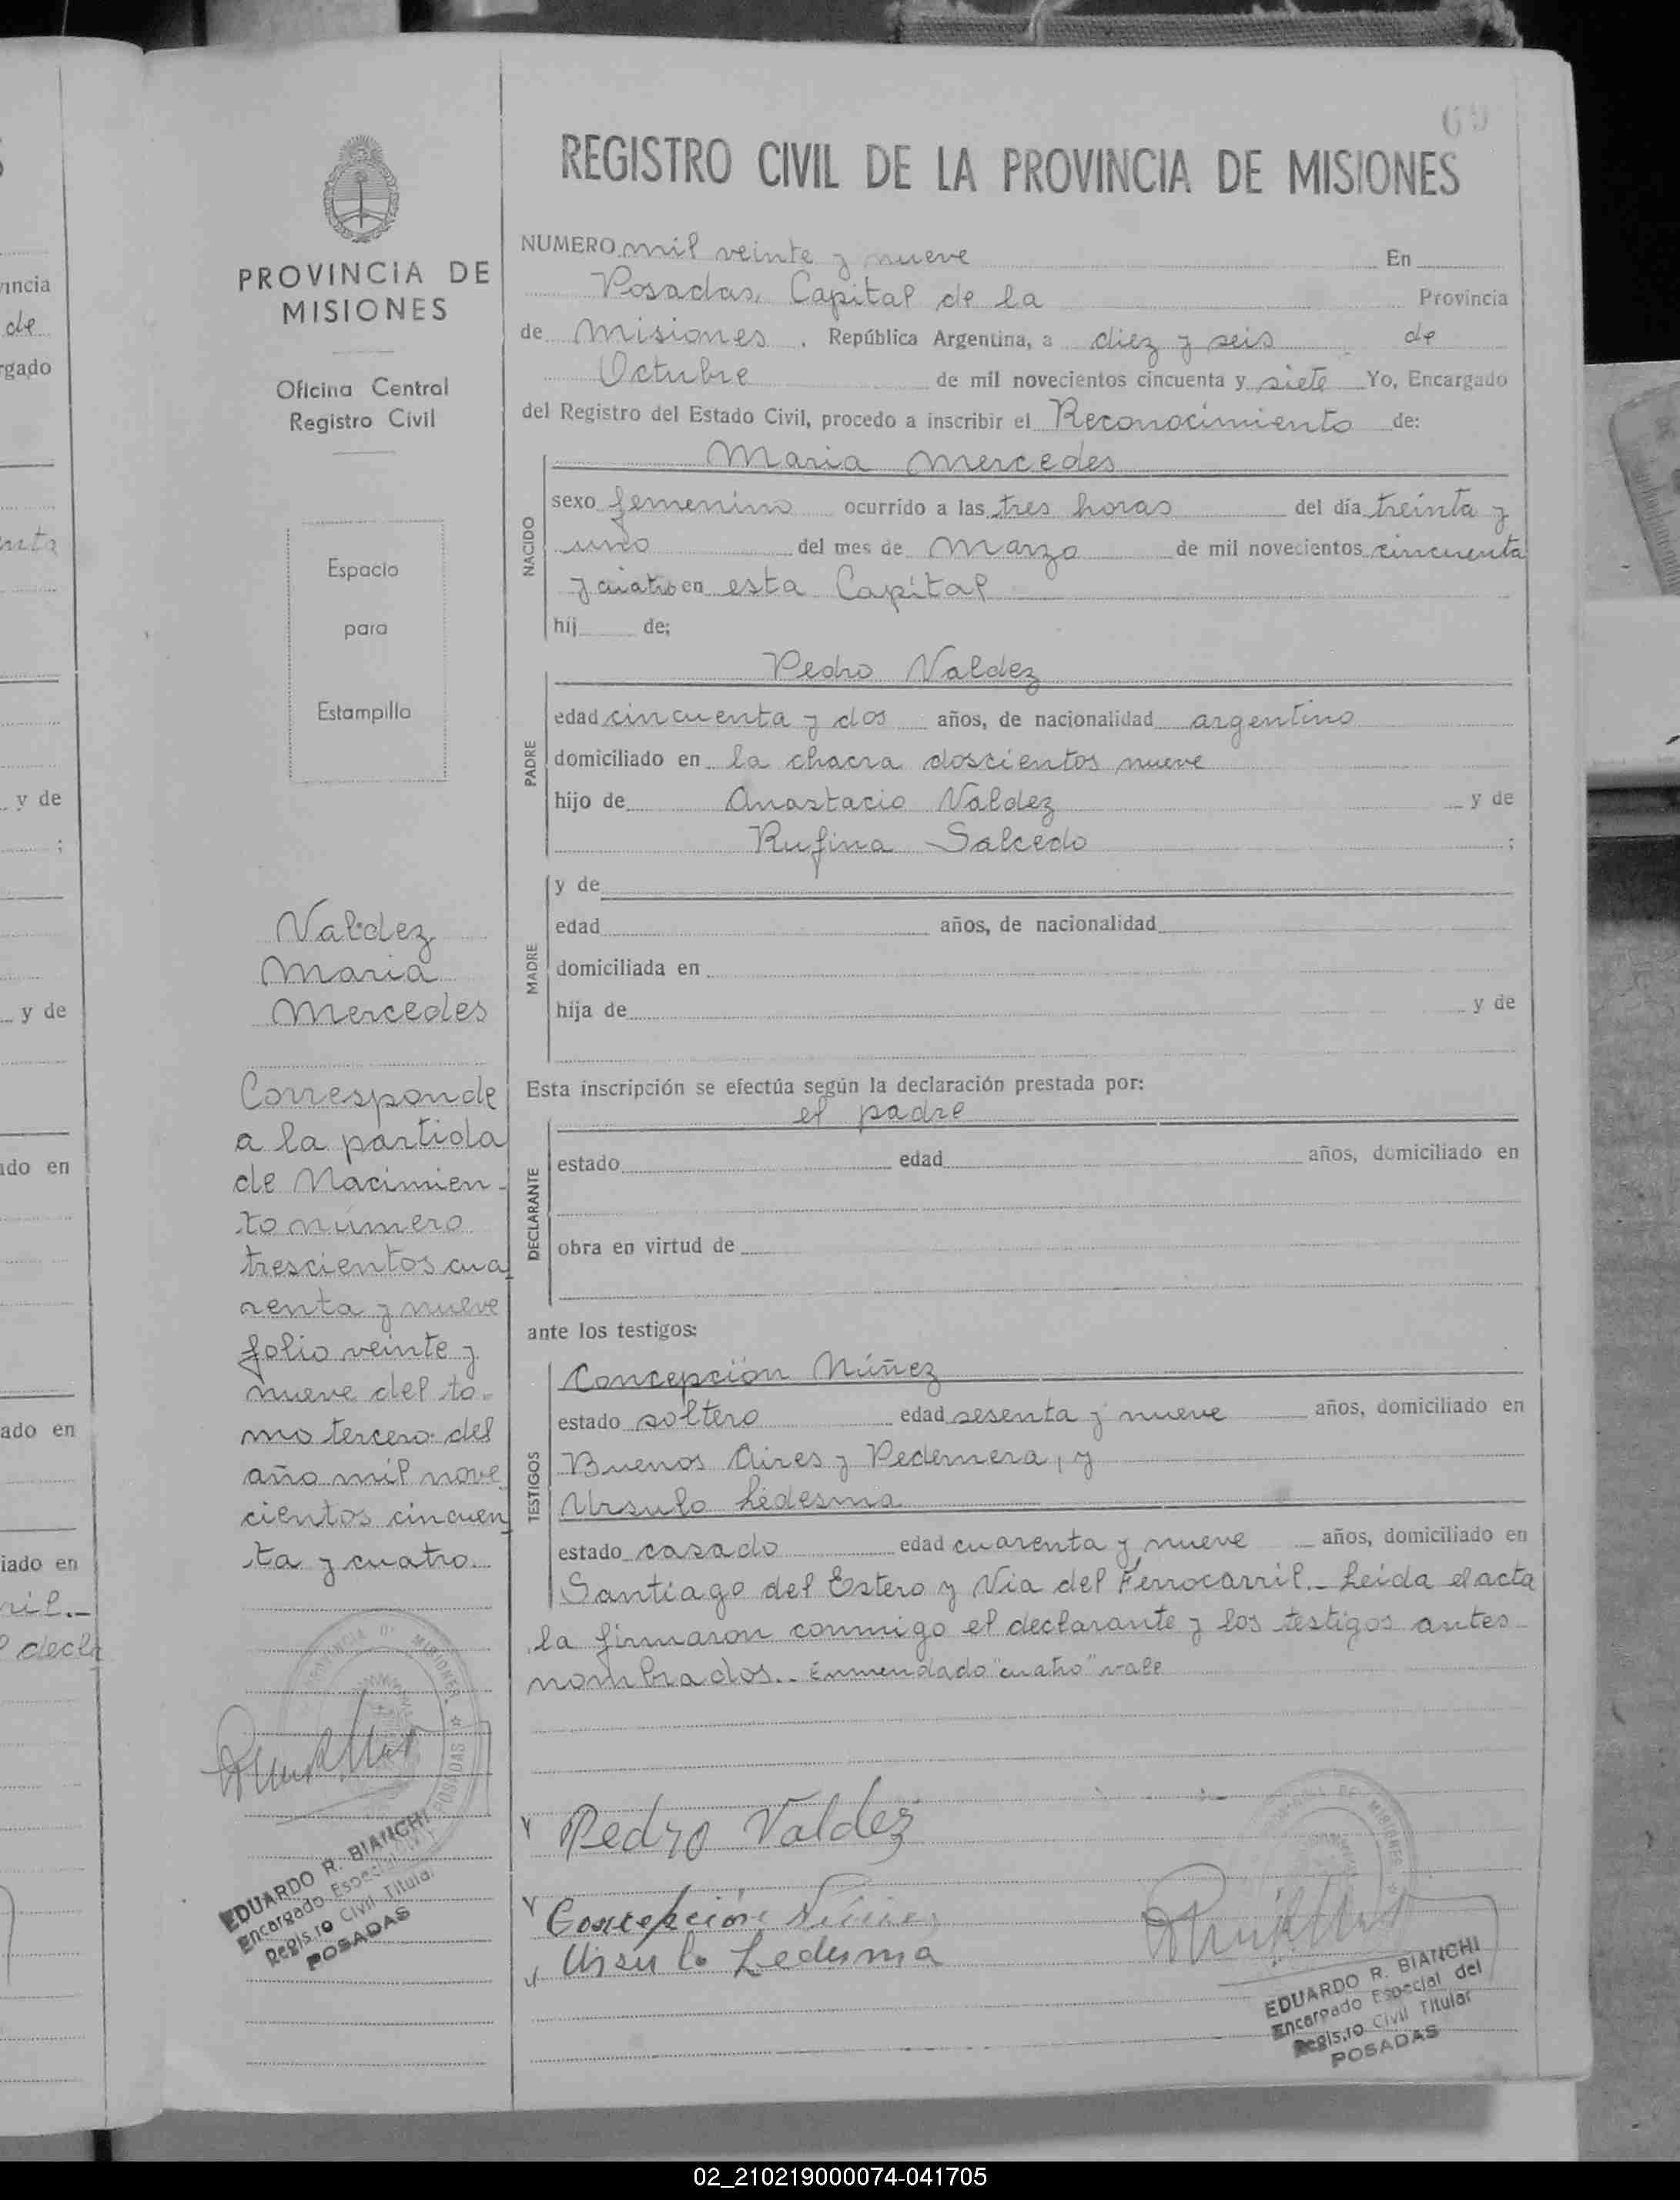 69
REGISTRO CIVIL DE LA PROVINCIA DE MISIONES
PROVINCIA DE
MISIONES
Oficina Central
Registro Civil
Espacio
para
Estampilla
Valdez
Maria
Mercedes
Corresponde
a la partida
de Nacimien-
to número
trescientos cua
renta y nueve
folio veinte y
nueve del to-
mo tercero del
año mil nove
cientos cincuen
ta y cuatro
PROVINCIA DE MISIONES
POSADAS
EDUARDO R. BIANCHI
Encargado Especial del
Registro Civil Titular
POSADAS
NUMERO mil veinte y nueve En
Posadas, Capital de la Provincia
de Misiones . República Argentina, a diez y seis de
Octubre de mil novecientos cincuenta y siete Yo, Encargado
del Registro del Estado Civil, procedo a inscribir el Reconocimiento de:
Maria Mercedes
NACIDO
sexo femenino ocurrido a las tres horas del día treinta y
uno del mes de Marzo de mil novecientos cincuenta
y cuatro en esta Capital
hij de;
Pedro Valdez
PADRE
edad cincuenta y dos años, de nacionalidad argentino
domiciliado en la chacra doscientos nueve
hijo de Anastacio Valdez y de
Rufina Salcedo ;
MADRE
y de
edad años, de nacionalidad
domiciliada en
hija de y de
Esta inscripción se efectúa según la declaración prestada por:
el padre
DECLARANTE
estado edad años, domiciliado en
obra en virtud de
ante los testigos:
TESTIGOS
Concepción Núñez
estado soltero edad sesenta y nueve años, domiciliado en
Buenos Aires y Pedernera, y
Ursulo Ledesma
estado casado edad cuarenta y nueve años, domiciliado en
Santiago del Estero y Via del Ferrocarril.- Leida el acta
la firmaron conmigo el declarante y los testigos antes
nombrados.- Enmendado "cuatro" vale
Pedro Valdez
Concepción Núñez
Ursulo Ledesma
EDUARDO R. BIANCHI
Encargado Especial del
Registro Civil Titular
POSADAS
vincia
de
rgado
y de
;
y de
ado en
ado en
iado en
ril.-
decla
02_210219000074-041705